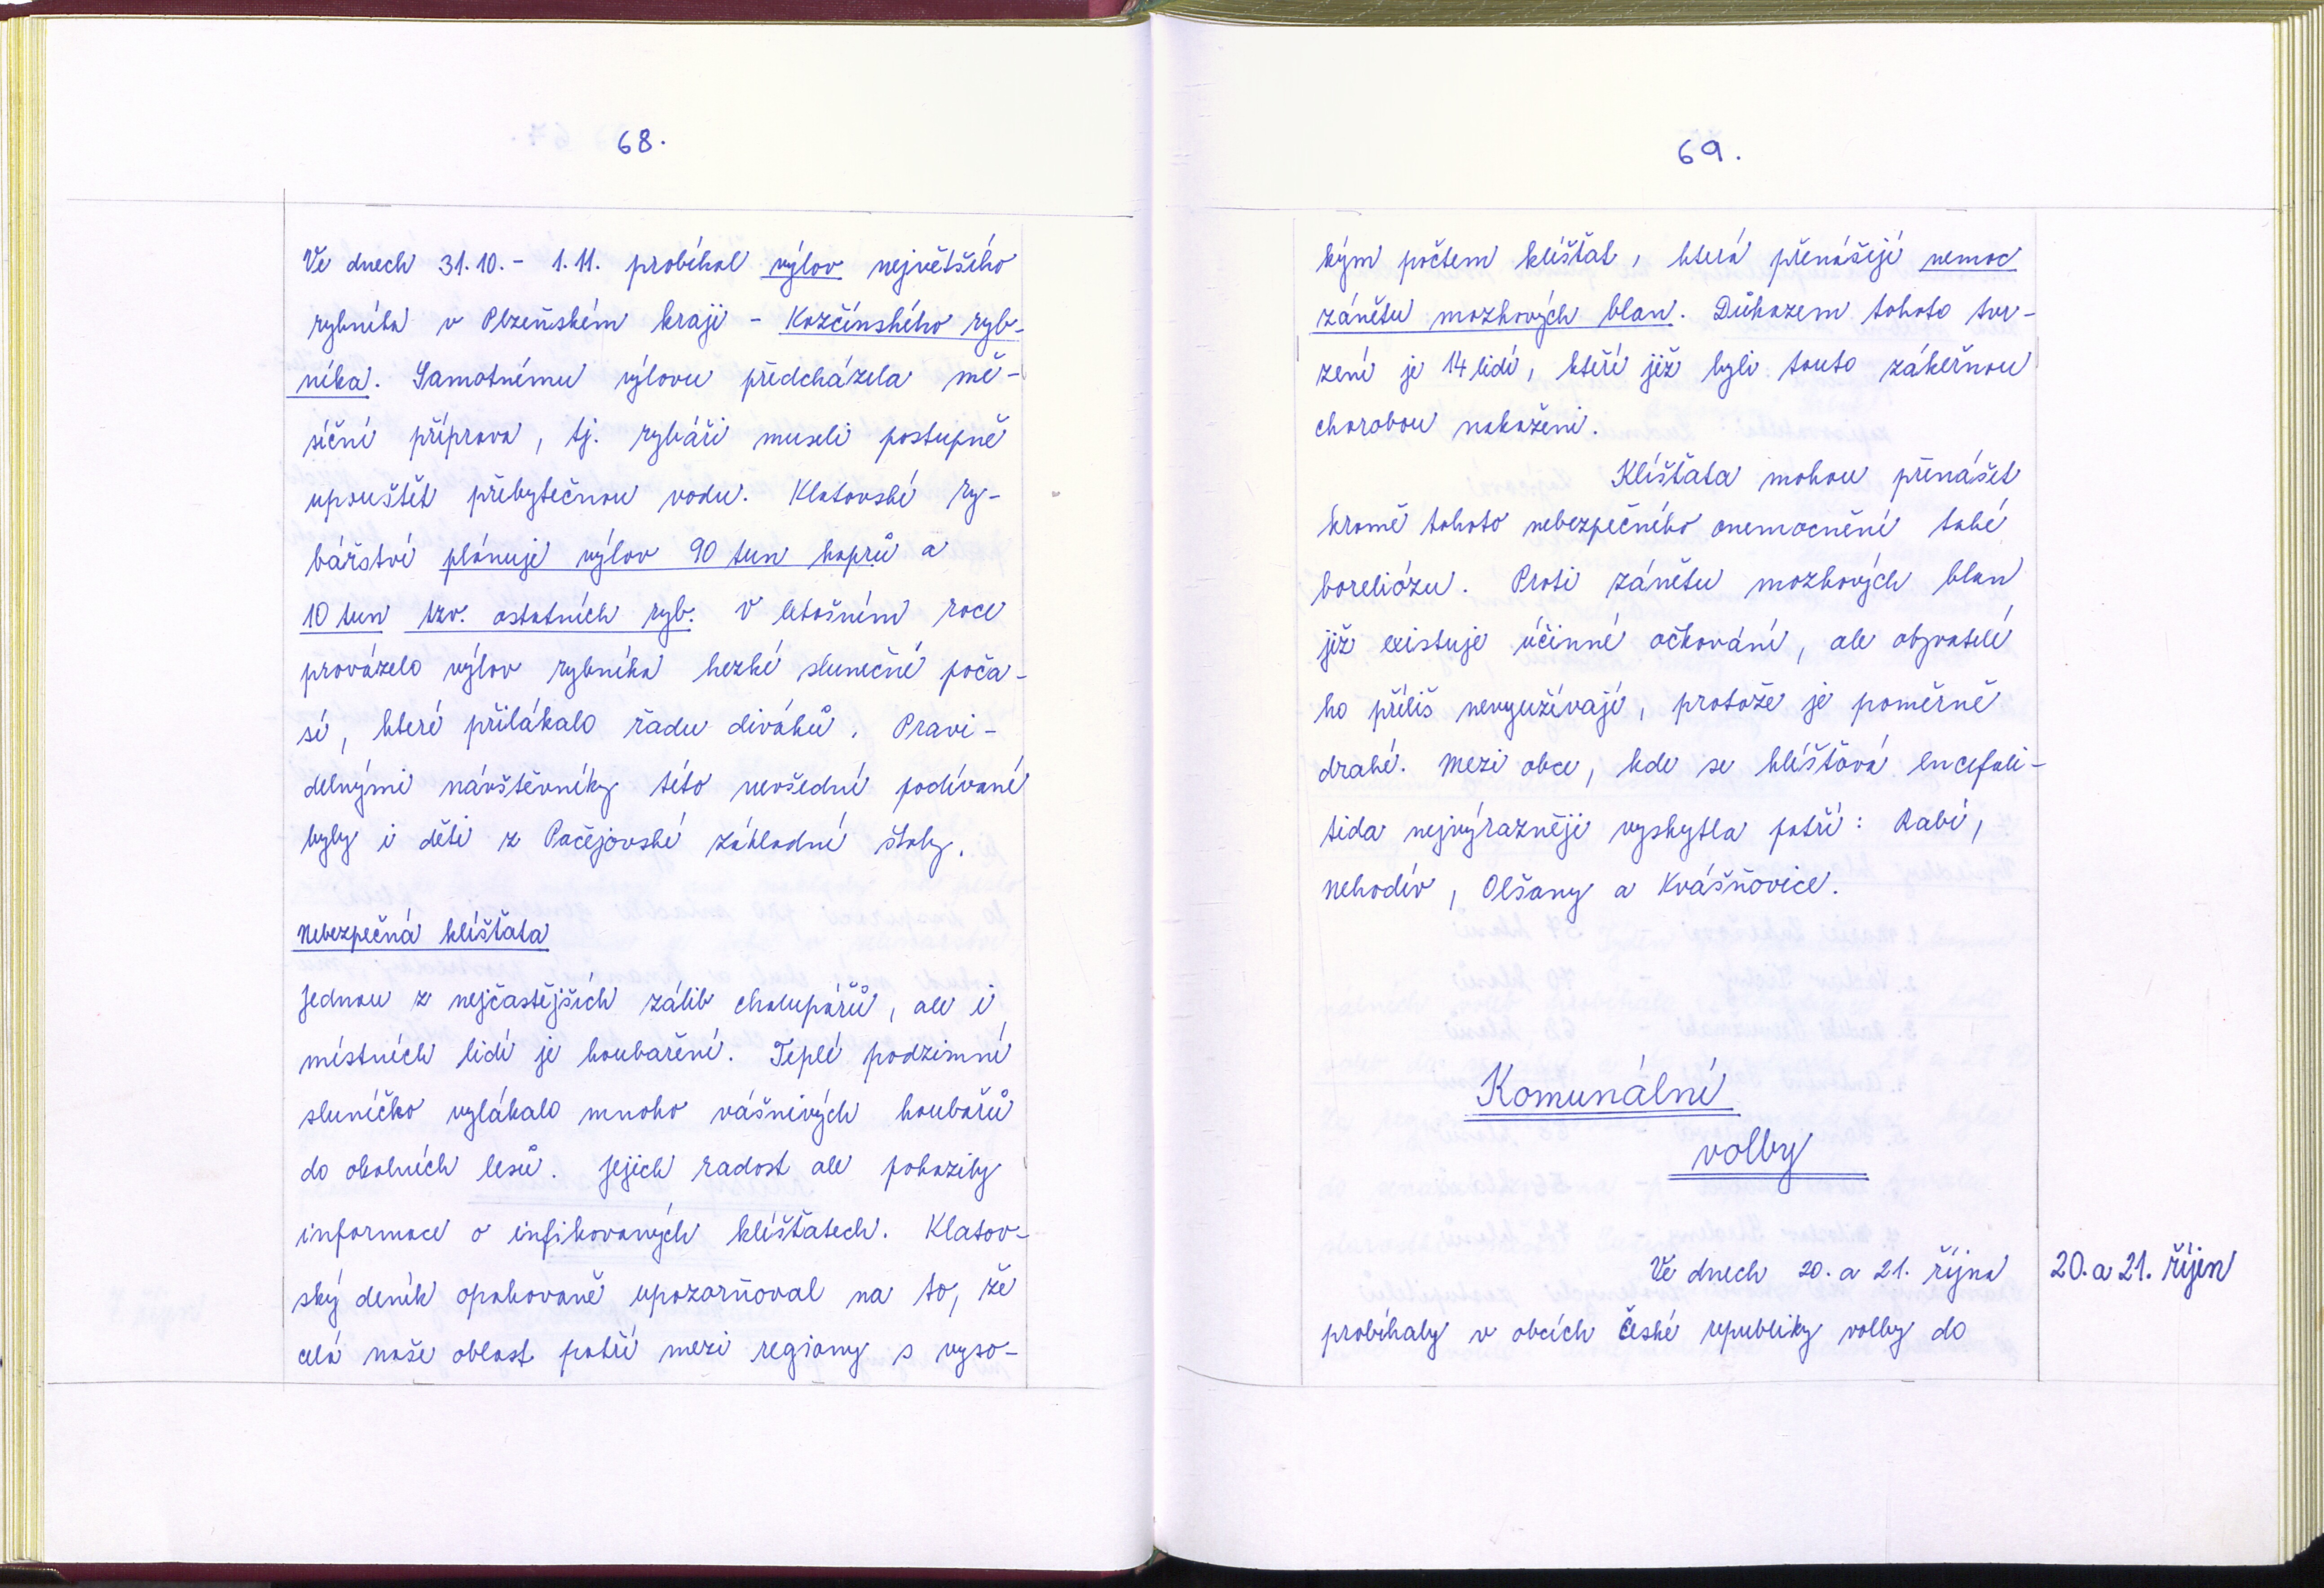 68.
Ve dnech 31.10. - 1.11. probíhal výlov největšího
rybníka v Plzeňském kraji - Kozčínského ryb-
níka. Samotnému výlovu předcházela mě-
síční příprava, tj. rybáři museli postupně
upouštět přebytečnou vodu. Klatovské ry-
bářství plánuje výlov 90 tun kaprů a
10 tun tzv. ostatních ryb. V letošním roce
provázelo výlov rybníka hezké slunečné poča-
sí, které přilákalo řadu diváků. Pravi-
delnými návštěvníky této nevšední podívané
byly i děti z Pačejovské základní školy.
Nebezpečná klíšťata
Jednou z nejčastějších zálib chalupářů, ale i
místních lidí je houbaření. Teplé podzimní
sluníčko vylákalo mnoho vášnivých houbařů
do okolních lesů. Jejich radost ale pokazily
informace o infikovaných klíšťatech. Klatov-
ský deník opakovaně upozorňoval na to, že
celá naše oblast patří mezi regiony s vyso-
69.
kým počtem klíšťat, která přenášejí nemoc
zánětu mozkových blan. Důkazem tohoto tvr-
zení je 14 lidí, kteří již byli touto zákeřnou
chorobou nakaženi.
Klíšťata mohou přenášet
kromě tohoto nebezpečného onemocnění také
boreliózu. Proti zánětu mozkových blan
již existuje účinné očkování, ale obyvatelé
ho příliš nevyužívají, protože je poměrně
drahé. Mezi obce, kde se klíšťová encefali-
tida nejvýrazněji vyskytla patří: Rabí,
Nehodiv, Olšany a Kvášňovice.
Komunální
volby
Ve dnech 20. a 21. října
20. a 21. říjen
probíhaly v obcích České republiky volby do